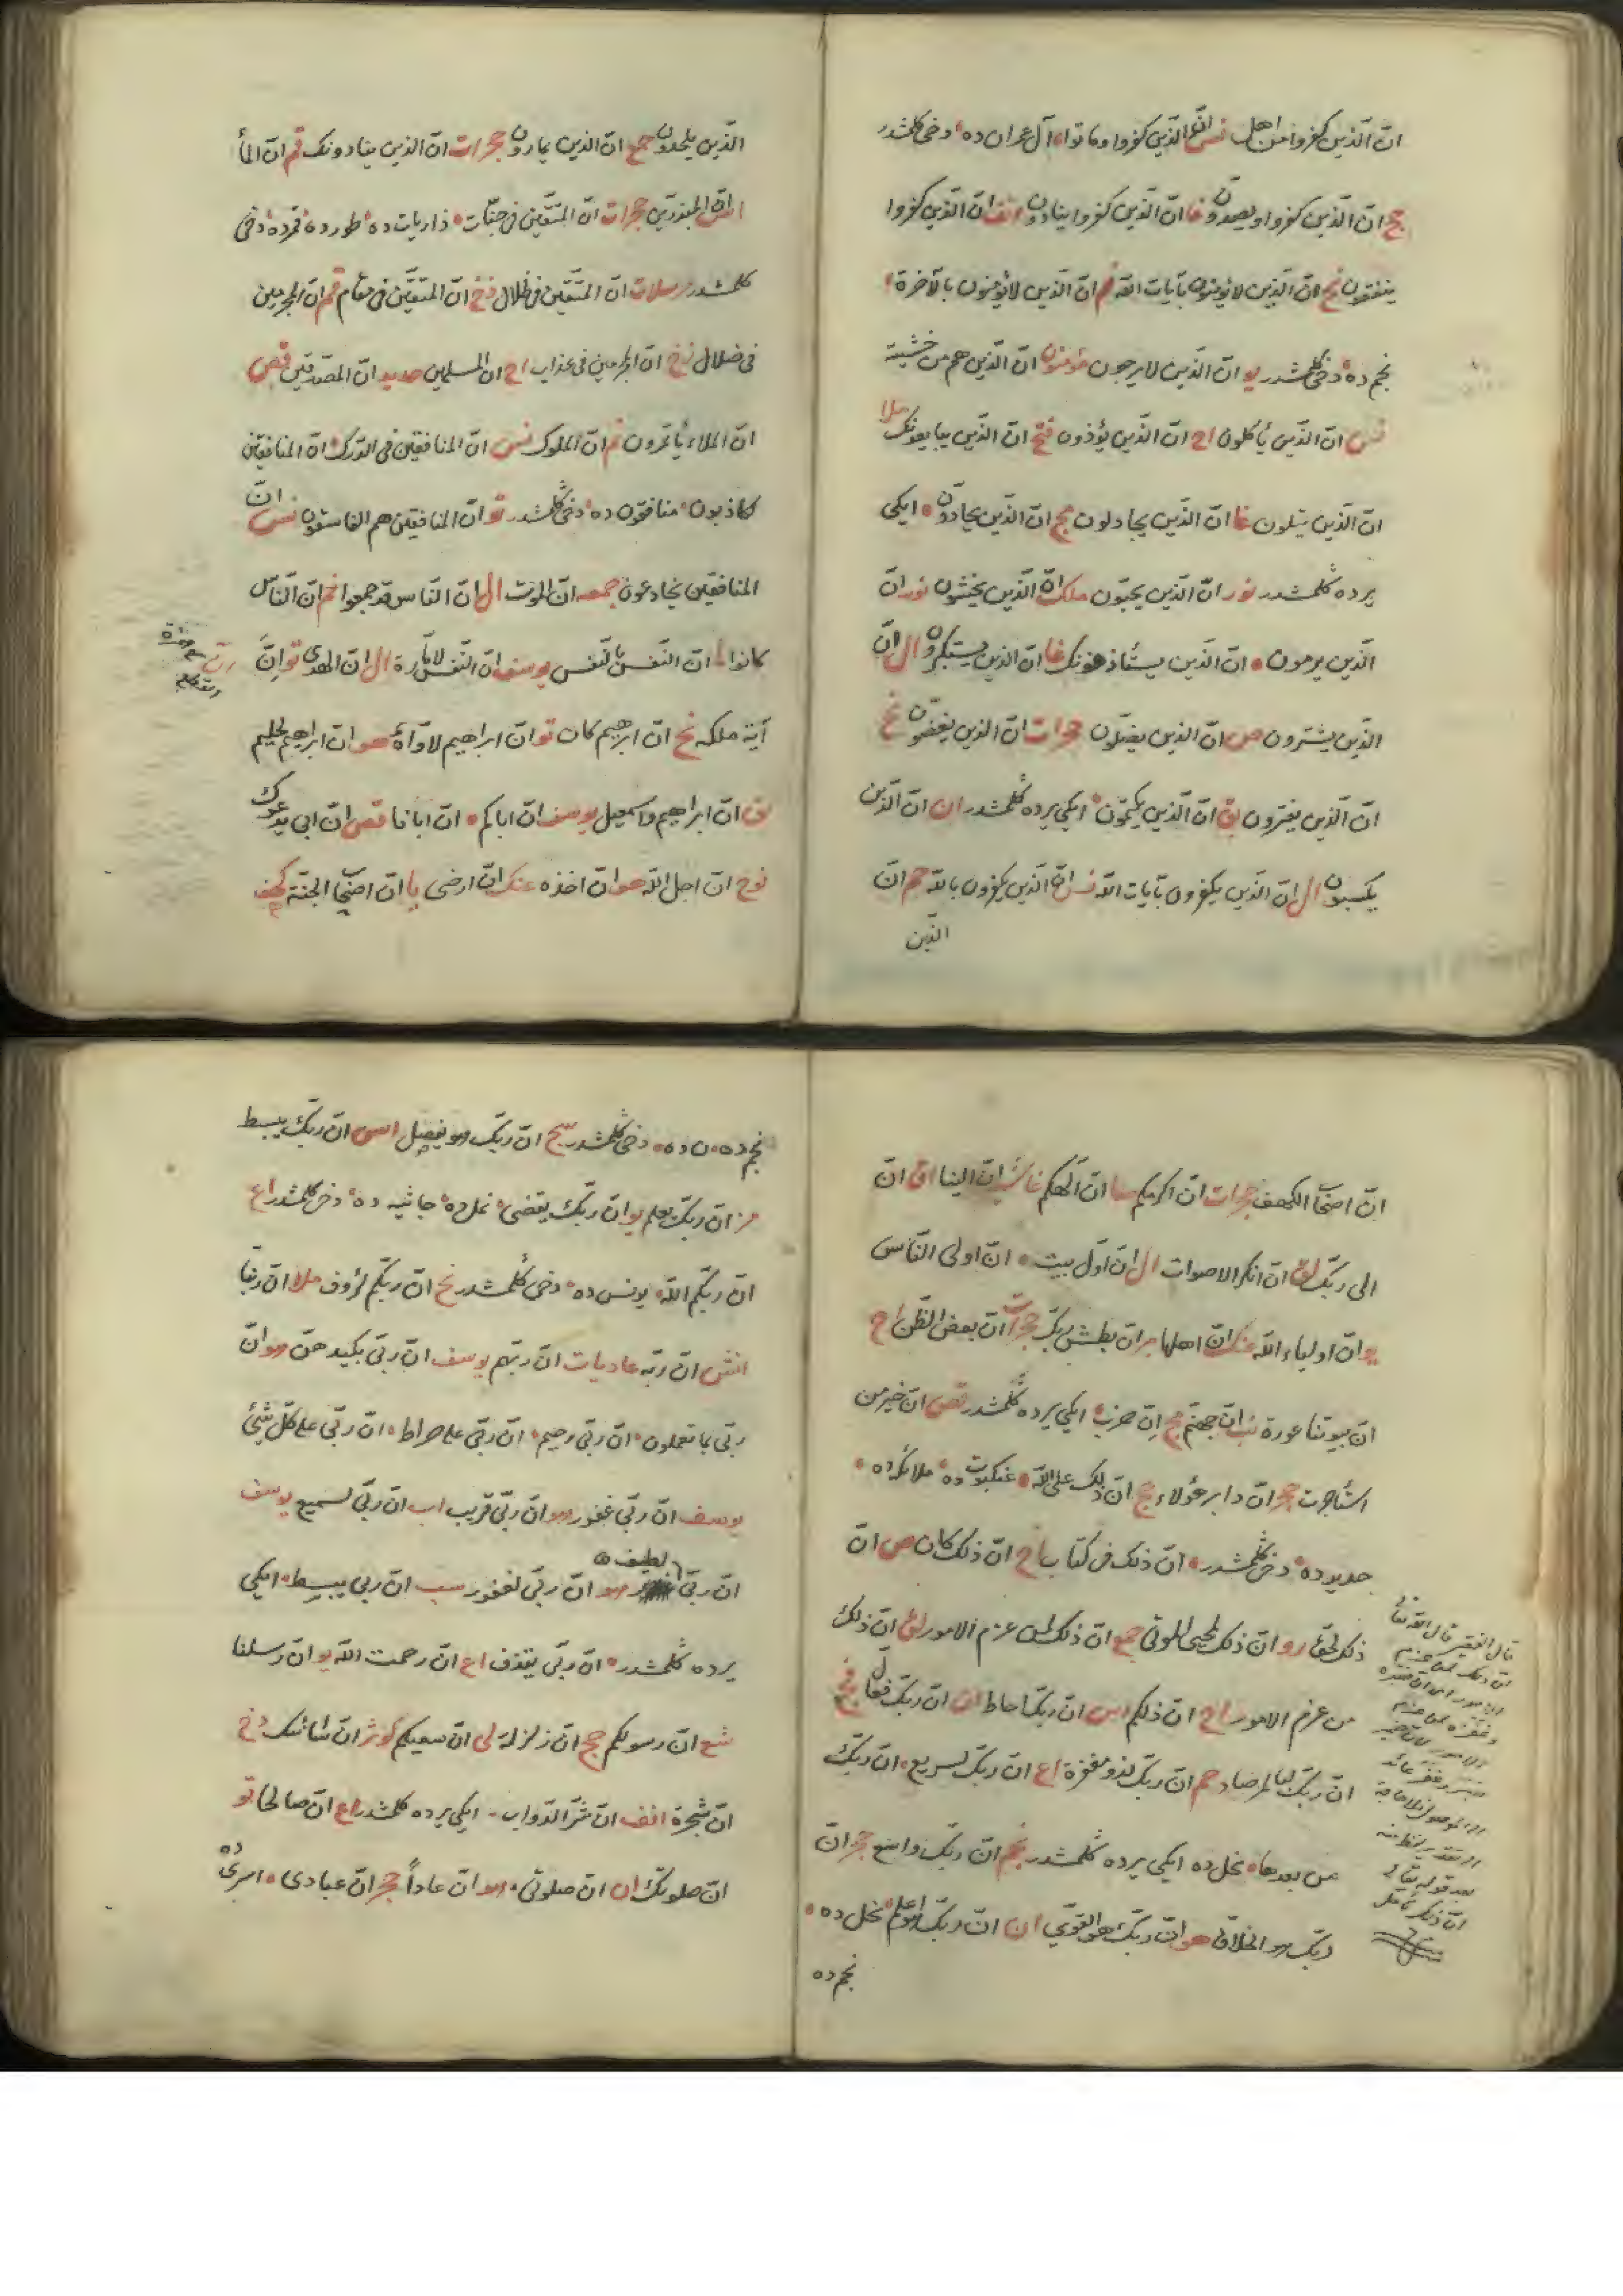 انّ الّذين كفروا من اهل نس انّ الّذين كفروا وماتوا آل عمران ده دخى كلمشدر
حج انّ الّذين كفروا ويصدّون غا انّ الّذين كفروا ينادون انف انّ الّذين كفروا
ينفقون نح انّ الّذين لا يؤمنون بآيات اللّه نم انّ الّذين لا يؤمنون بالآخرة
نجم ده دخى كلمشدر يو انّ الّذين لا يرجون مؤمنون انّ الّذين هم من خشية
نس انّ الّذين يأكلون اح انّ الّذين يؤذون فتح انّ الذين يبايعونك ملا
انّ الّذين يتلون غا انّ الّذين يجادلون مج انّ الّذين يحادّون ايكى
يرده كلمشدر نور انّ الّذين يحبّون ملك انّ الّذين يخشون نور انّ
الّذين يرمون انّ الّذين يستأذنونك غا انّ الذين يستكبرون ال انّ
الّذين يشترون ص انّ الّذين يضلّون حجرات انّ الّذين يغضّون نح
انّ الّذين يفترون بق انّ الّذين يكتمون ايكى يرده كلمشدر ان انّ الّذين
يكسبون ال انّ الّذين يكفرون بآيات اللّه نس انّ الّذين يكفرون باللّه حم انّ
الّذين
الّذين يلحدون حج انّ الذين يمارون حجرات انّ الذين ينادونك قم انّ الما
اس انّ المبذرين حجرات انّ المتّقين فى جنّات ذاريات ده طور ده قمرده دخى
كلمشدر مرسلات انّ المتّقين فى ظلال دخ انّ المتّقين فى مقام قم انّ المجرمين
فى ضلال زخ انّ المجرمين فى عذاب اح انّ المسلمين حديد انّ المصّدّقين قص
انّ الملاء يأتمرون نم انّ الملوك نس انّ المنافقين فى الدّرك انّ المنافقين
لكاذبون منافقون ده دخى كلمشدر تو انّ المنافقين هم الفاسقون نس انّ
المنافقين يخادعون جمعه انّ الموت ال انّ النّاس قد جمعوا نم انّ النّاس
كانوا ما انّ النّفس بالنّفس يوسف انّ النّفس لامّارة ال انّ الهدى تو انّ
آية ملكه نح انّ ابرهيم كان تو انّ ابراهيم لاوّاه هو انّ ابراهيم لحليم
بق انّ ابراهيم واسمعيل يوسف انّ اباكم انّ ابانا قص انّ ابى يدعوك
نوح انّ اجل اللّه هو انّ اخذه عنك انّ ارضى يا انّ اصحاب الجنّة كهف
انّ اصحاب الكهف حجرات انّ اكرمكم صا انّ الهكم غاش انّ الينا اق انّ
الى ربّك لق انّ انكر الاصوات ال انّ اوّل بيت انّ اولى النّاس
يو انّ اولياء اللّه عنك انّ اهلها بر انّ بطش ربّك حجرات انّ بعض الظّن اح
انّ بيوتنا عورة نب انّ جهنّم مج انّ حزب ايكى يرده كلمشدر قص انّ خير من
استأجرت حجر انّ دابر هؤلاء حج انّ ذلك على اللّه عنكبوت ده ملائكه ده
حديد ده دخى كلمشدر انّ ذلك فى كتاب اح انّ ذلكم كان ص انّ
ذلك لحقّ رو انّ ذلك لمحيى الموتى جمع انّ ذلك لمن عزم الامور لق انّ ذلك
من عزم الامور اح انّ ذلكم اس انّ ربّك احاط انّ ربّك فعّال فج
انّ ربّك لبالمرصاد حم انّ ربّك لذو مغفرة اع انّ ربّك لسريع انّ ربّك
من بعدها نحل ده ايكى يرده كلمشدر نجم انّ ربّك واسع حجر انّ
ربّك هو الخلاق هو انّ ربّك هو القوىّ ان انّ ربّك هو اعلم نحل ده
نجم ده
نجم ده ن ده دخى كلمشدر سج انّ ربّك هو يفصل اس انّ ربّك يبسط
مز انّ ربّك يعلم يو انّ ربّك يقضى نمل ده جاثيه ده دخى كلمشدر اع
انّ ربّكم اللّه يونس ده دخى كلمشدر نح انّ ربّكم لرؤف ملا انّ ربّنا
انش انّ ربّه عاديات انّ ربّهم يوسف انّ ربّى بكيدهنّ هو انّ
ربّى بما تعملون انّ ربّى رحيم انّ ربّى على صراط انّ ربّى على كلّ شئ
يوسف انّ ربّى غفور هو انّ ربّى قريب اب انّ ربّى لسميع يوسف
انّ ربّى لطيف هو انّ ربّى لغفور سب انّ ربى يبسط ايكى
يرده كلمشدر انّ ربّى يقذف اع انّ رحمت اللّه يو انّ رسلنا
شع انّ رسولكم حج انّ زلزلة لى انّ سعيكم كوثر انّ شانئك دخ
انّ شجرة انف انّ شرّ الدّواب ايكى يرده كلمشدر اع انّ صالحا تو
انّ صلوتك ان انّ صلوتى هو انّ عاداً حجر انّ عبادى اسرى ده